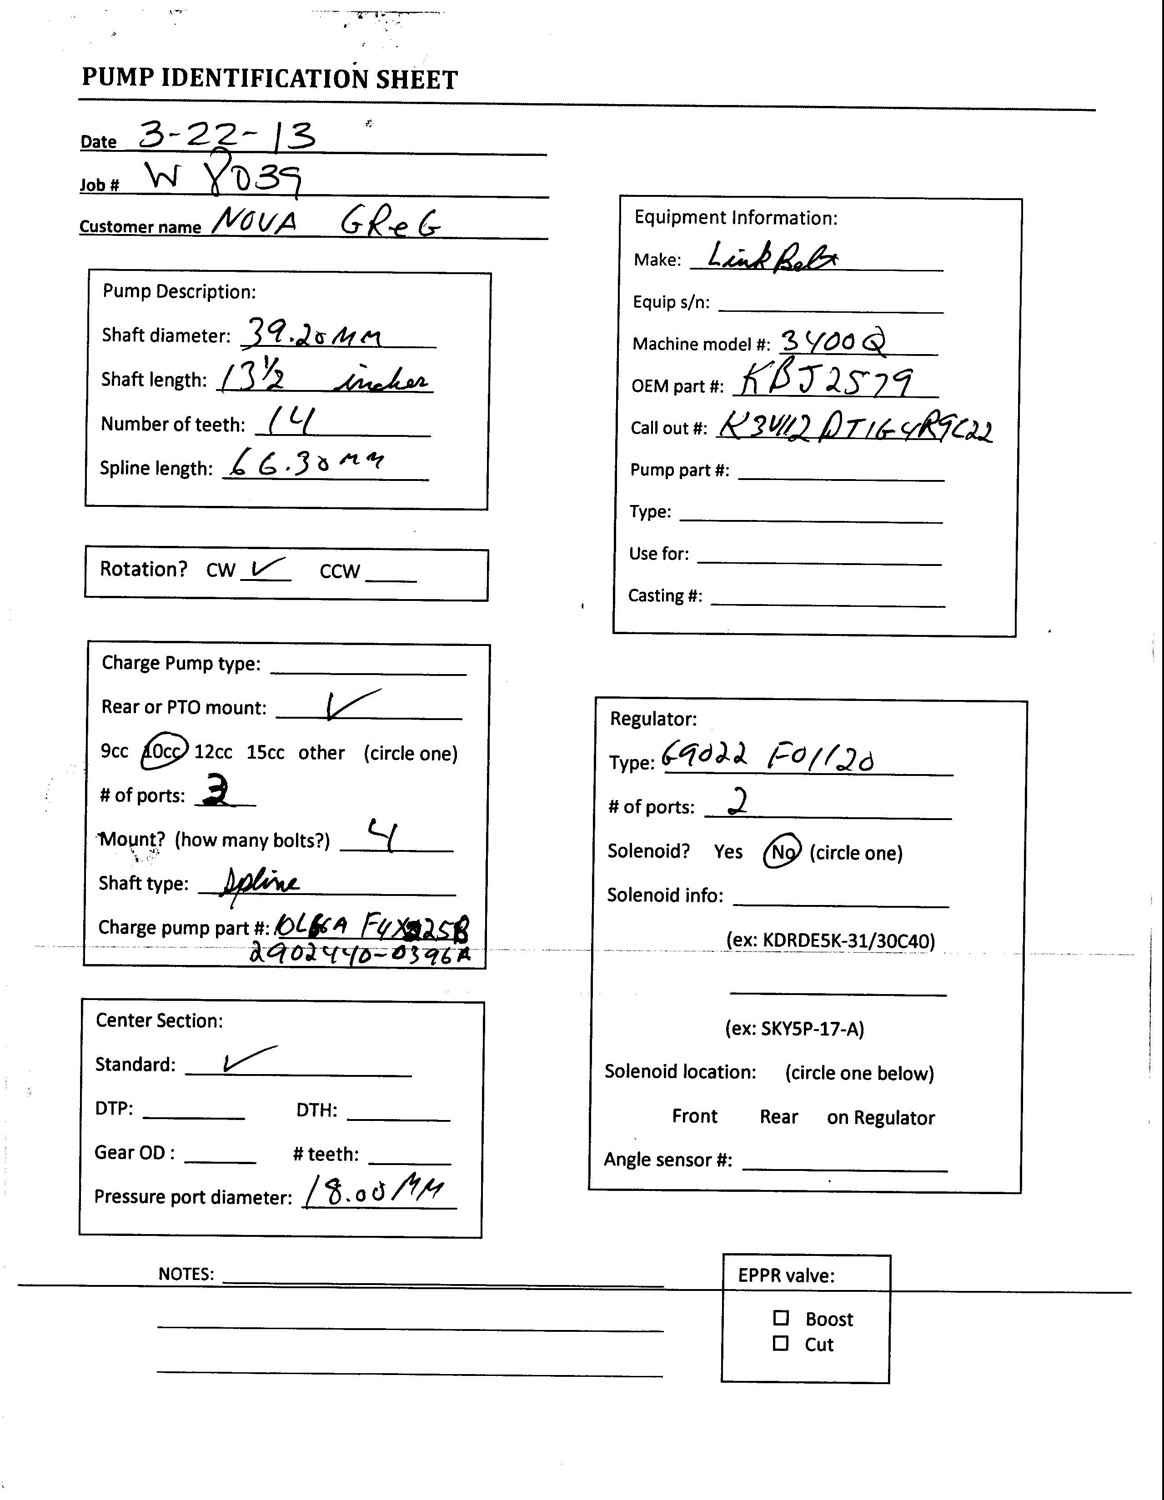 PUMP IDENTIFICATION SHEET
Date 3-22-13
Job # W 8039
Customer name NOVA GReG
Pump Description:
Shaft diameter: 39.20 MM
Shaft length: 13 1/2 inches
Number of teeth: 14
Spline length: 66.30 MM
Rotation? CW ✓ CCW
Charge Pump type:
Rear or PTO mount: ✓
9cc 10cc 12cc 15cc other (circle one)
# of ports: 3
Mount? (how many bolts?) 4
Shaft type: Spline
Charge pump part #:
2902440-0396A
Center Section:
Standard: ✓
DTP: DTH:
Gear OD : # teeth:
Pressure port diameter: 18.00 MM
Equipment Information:
Make: Link Belt
Equip s/n:
Machine model #: 3400Q
OEM part #: KBJ2579
Call out #: K3V112DT1G4R9C22
Pump part #:
Type:
Use for:
Casting #:
Regulator:
Type: G9022 F01120
# of ports: 2
Solenoid? Yes No (circle one)
Solenoid info:
(ex: KDRDE5K-31/30C40)
(ex: SKY5P-17-A)
Solenoid location: (circle one below)
Front Rear on Regulator
Angle sensor #:
NOTES:
EPPR valve:
☐ Boost
☐ Cut